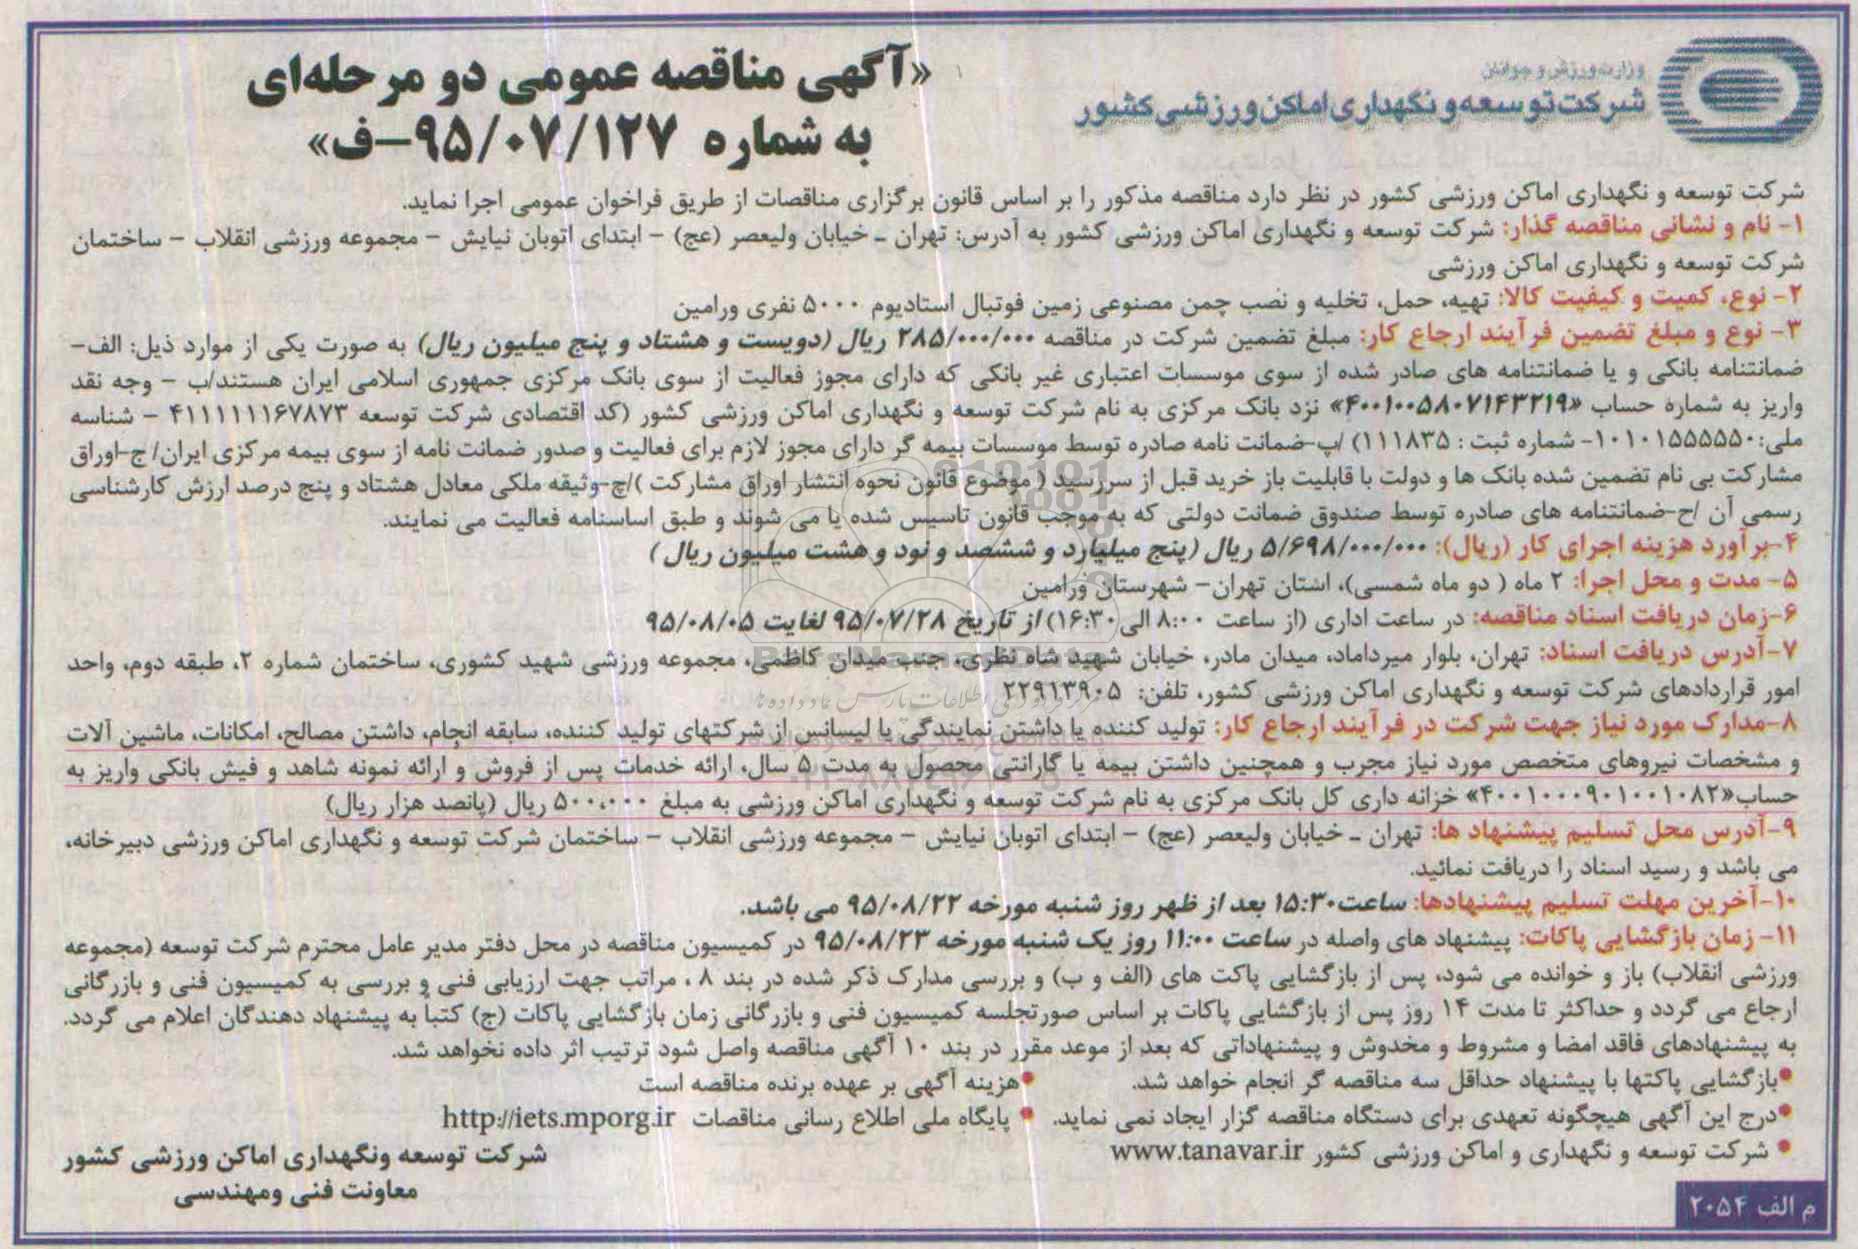 وزارت ورزش و جوانان
شرکت توسعه و نگهداری اماکن ورزشی کشور
«آگهی مناقصه عمومی دو مرحله‌ای
به شماره ۹۵/۰۷/۱۲۷-ف»
شرکت توسعه و نگهداری اماکن ورزشی کشور در نظر دارد مناقصه مذکور را بر اساس قانون برگزاری مناقصات از طریق فراخوان عمومی اجرا نماید.
۱- نام و نشانی مناقصه گذار: شرکت توسعه و نگهداری اماکن ورزشی کشور به آدرس: تهران ـ خیابان ولیعصر (عج) – ابتدای اتوبان نیایش – مجموعه ورزشی انقلاب – ساختمان
شرکت توسعه و نگهداری اماکن ورزشی
۲- نوع، کمیت و کیفیت کالا: تهیه، حمل، تخلیه و نصب چمن مصنوعی زمین فوتبال استادیوم ۵۰۰۰ نفری ورامین
۳- نوع و مبلغ تضمین فرآیند ارجاع کار: مبلغ تضمین شرکت در مناقصه ۲۸۵/۰۰۰/۰۰۰ ریال (دویست و هشتاد و پنج میلیون ریال) به صورت یکی از موارد ذیل: الف-
ضمانتنامه بانکی و یا ضمانتنامه های صادر شده از سوی موسسات اعتباری غیر بانکی که دارای مجوز فعالیت از سوی بانک مرکزی جمهوری اسلامی ایران هستند/ب – وجه نقد
واریز به شماره حساب «۴۰۰۱۰۰۵۸۰۷۱۴۳۲۱۹» نزد بانک مرکزی به نام شرکت توسعه و نگهداری اماکن ورزشی کشور (کد اقتصادی شرکت توسعه ۴۱۱۱۱۱۱۶۷۸۷۳ – شناسه
ملی: ۱۰۱۰۱۵۵۵۵۵۰- شماره ثبت : ۱۱۱۸۳۵) /پ-ضمانت نامه صادره توسط موسسات بیمه گر دارای مجوز لازم برای فعالیت و صدور ضمانت نامه از سوی بیمه مرکزی ایران/ ج-اوراق
مشارکت بی نام تضمین شده بانک ها و دولت با قابلیت باز خرید قبل از سررسید ( موضوع قانون نحوه انتشار اوراق مشارکت )/چ-وثیقه ملکی معادل هشتاد و پنج درصد ارزش کارشناسی
رسمی آن /ح-ضمانتنامه های صادره توسط صندوق ضمانت دولتی که به موجب قانون تاسیس شده یا می شوند و طبق اساسنامه فعالیت می نمایند.
۴-برآورد هزینه اجرای کار (ریال): ۵/۶۹۸/۰۰۰/۰۰۰ ریال (پنج میلیارد و ششصد و نود و هشت میلیون ریال )
۵- مدت و محل اجرا: ۲ ماه ( دو ماه شمسی)، استان تهران– شهرستان ورامین
۶-زمان دریافت اسناد مناقصه: در ساعت اداری (از ساعت ۸:۰۰ الی ۱۶:۳۰) از تاریخ ۹۵/۰۷/۲۸ لغایت ۹۵/۰۸/۰۵
۷-آدرس دریافت اسناد: تهران، بلوار میرداماد، میدان مادر، خیابان شهید شاه نظری، جنب میدان کاظمی، مجموعه ورزشی شهید کشوری، ساختمان شماره ۲، طبقه دوم، واحد
امور قراردادهای شرکت توسعه و نگهداری اماکن ورزشی کشور، تلفن: ۲۲۹۱۳۹۰۵
۸-مدارک مورد نیاز جهت شرکت در فرآیند ارجاع کار: تولید کننده یا داشتن نمایندگی یا لیسانس از شرکتهای تولید کننده، سابقه انجام، داشتن مصالح، امکانات، ماشین آلات
و مشخصات نیروهای متخصص مورد نیاز مجرب و همچنین داشتن بیمه یا گارانتی محصول به مدت ۵ سال، ارائه خدمات پس از فروش و ارائه نمونه شاهد و فیش بانکی واریز به
حساب«۴۰۰۱۰۰۰۹۰۱۰۰۱۰۸۲» خزانه داری کل بانک مرکزی به نام شرکت توسعه و نگهداری اماکن ورزشی به مبلغ ۵۰۰،۰۰۰ ریال (پانصد هزار ریال)
۹-آدرس محل تسلیم پیشنهاد ها: تهران ـ خیابان ولیعصر (عج) – ابتدای اتوبان نیایش – مجموعه ورزشی انقلاب – ساختمان شرکت توسعه و نگهداری اماکن ورزشی دبیرخانه،
می باشد و رسید اسناد را دریافت نمائید.
۱۰-آخرین مهلت تسلیم پیشنهادها: ساعت ۱۵:۳۰ بعد از ظهر روز شنبه مورخه ۹۵/۰۸/۲۲ می باشد.
۱۱- زمان بازگشایی پاکات: پیشنهاد های واصله در ساعت ۱۱:۰۰ روز یک شنبه مورخه ۹۵/۰۸/۲۳ در کمیسیون مناقصه در محل دفتر مدیر عامل محترم شرکت توسعه (مجموعه
ورزشی انقلاب) باز و خوانده می شود، پس از بازگشایی پاکت های (الف و ب) و بررسی مدارک ذکر شده در بند ۸ ، مراتب جهت ارزیابی فنی و بررسی به کمیسیون فنی و بازرگانی
ارجاع می گردد و حداکثر تا مدت ۱۴ روز پس از بازگشایی پاکات بر اساس صورتجلسه کمیسیون فنی و بازرگانی زمان بازگشایی پاکات (ج) کتباً به پیشنهاد دهندگان اعلام می گردد.
به پیشنهادهای فاقد امضا و مشروط و مخدوش و پیشنهاداتی که بعد از موعد مقرر در بند ۱۰ آگهی مناقصه واصل شود ترتیب اثر داده نخواهد شد.
•بازگشایی پاکتها با پیشنهاد حداقل سه مناقصه گر انجام خواهد شد.
•هزینه آگهی بر عهده برنده مناقصه است
•درج این آگهی هیچگونه تعهدی برای دستگاه مناقصه گزار ایجاد نمی نماید.
• پایگاه ملی اطلاع رسانی مناقصات http://iets.mporg.ir
• شرکت توسعه و نگهداری و اماکن ورزشی کشور www.tanavar.ir
شرکت توسعه ونگهداری اماکن ورزشی کشور
معاونت فنی ومهندسی
م الف ۲۰۵۴